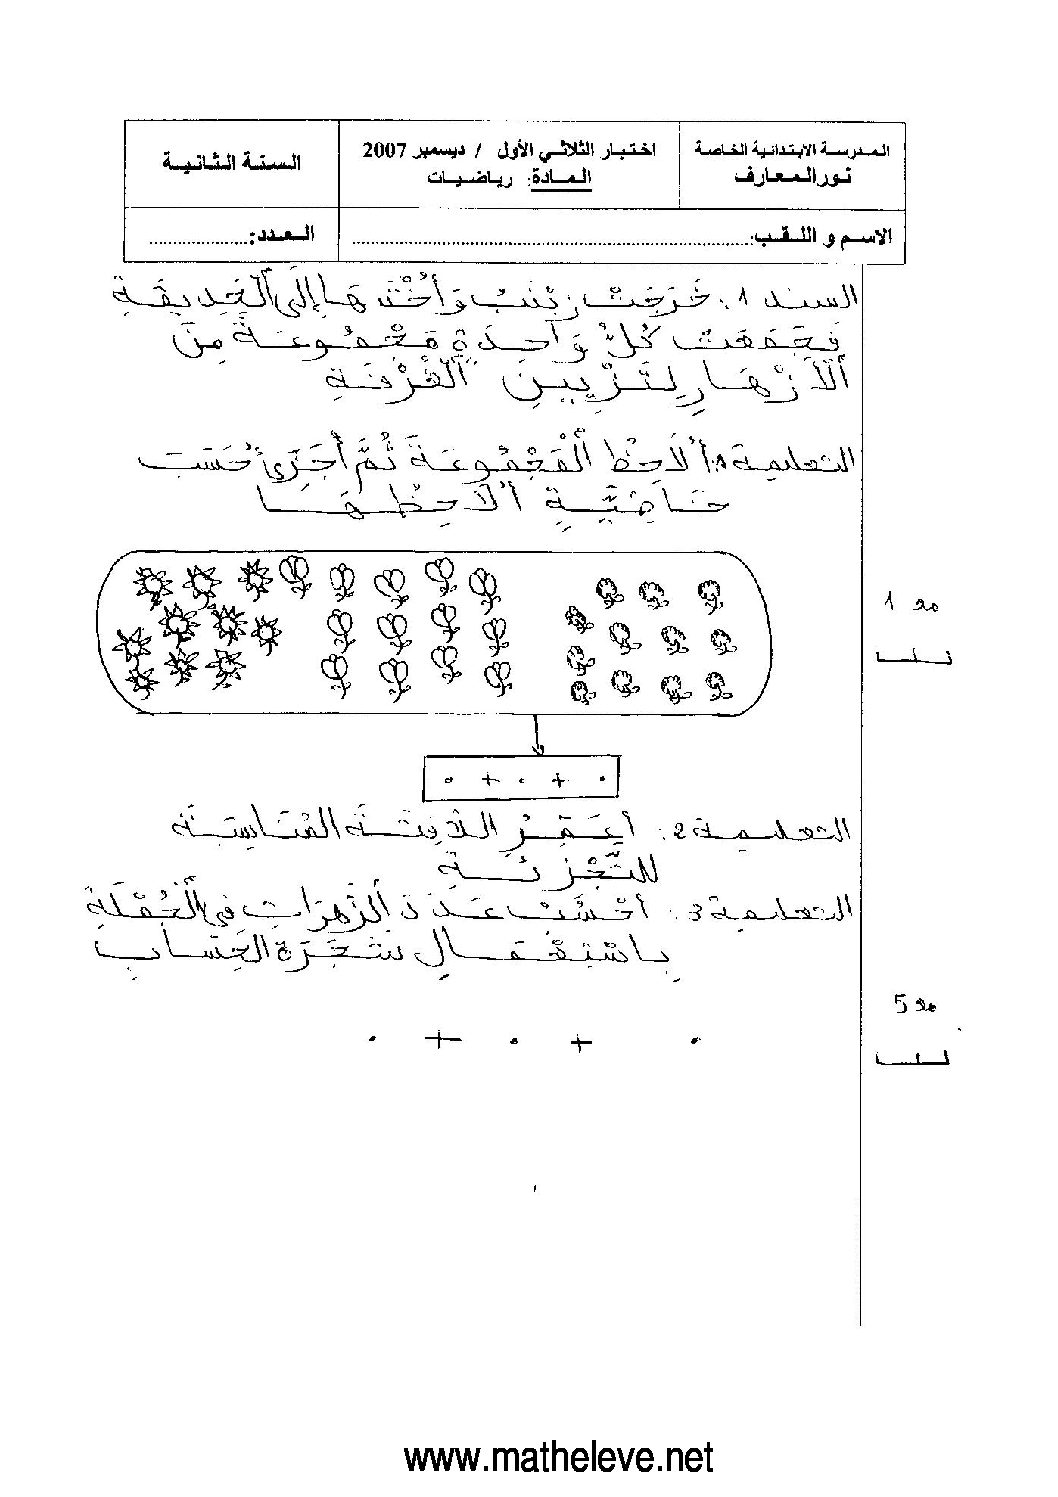 المدرسة الابتدائية الخاصة
نور المعارف
اختبار الثلاثي الأول / ديسمبر 2007
المادة: رياضيات
السنة الثانية
الاسم و اللقب:
العدد:
السند 1: خَرَجَتْ زَيْنَبُ وَأُخْتُهَا إِلَى ٱلْحَدِيقَةِ
فَجَمَعَتْ كُلُّ وَاحِدَةٍ مَجْمُوعَةً مِنَ
ٱلْأَزْهَارِ لِتَزْيِينِ ٱلْغُرْفَةِ
التعليمة 1: أُلَاحِظُ ٱلْمَجْمُوعَةَ ثُمَّ أُجَزِّئُ حَسَبَ
خَاصِّيَّةٍ أُلَاحِظُهَا
مع 1
. + . + .
التعليمة 2: أُعَمِّرُ اللَّافِتَةَ المُنَاسِبَةَ
لِلتَّجْزِئَةِ
التعليمة 3: أَحْسُبُ عَدَدَ ٱلزَّهَرَاتِ فِي ٱلْجُمْلَةِ
بِاسْتِعْمَالِ شَجَرَةِ الحِسَابِ
مع 5
. + . + .
www.matheleve.net